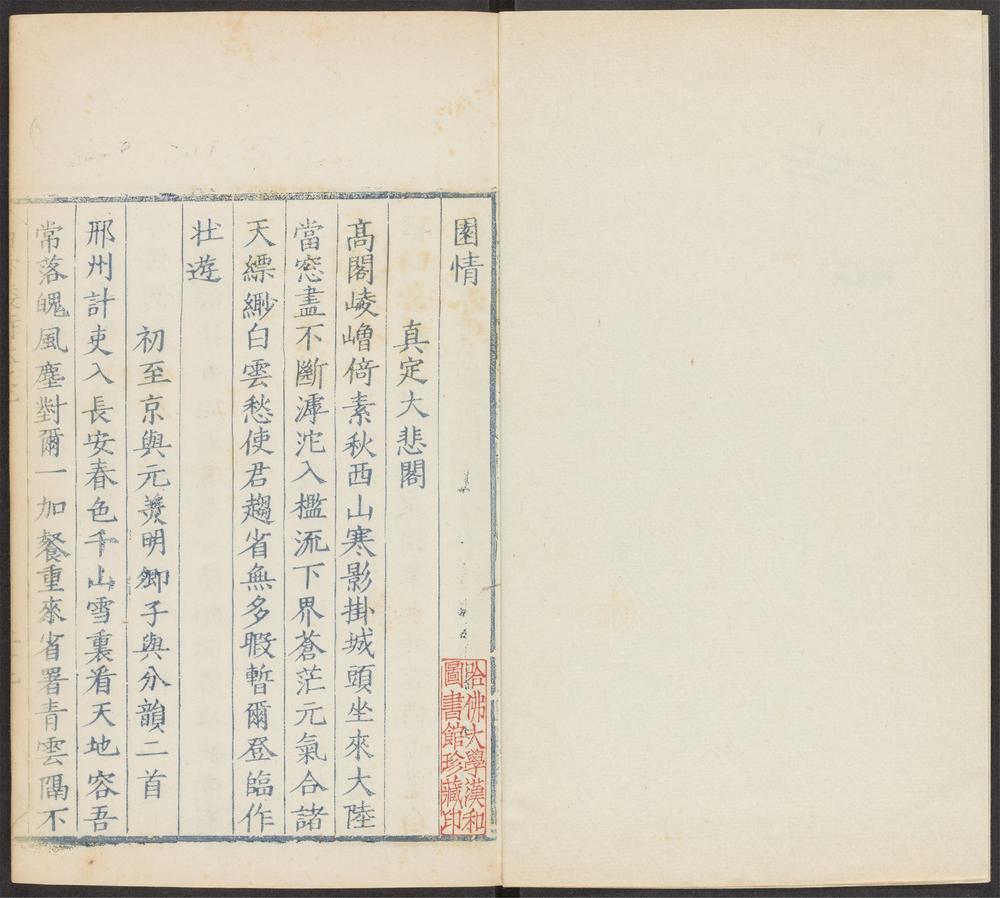 園情
真定大悲閣
髙閣崚嶒倚素秋西山寒影掛城頭坐來大陸
當窓盡不斷滹沱入檻流下界蒼茫元氣合諸
天縹緲白雲愁使君趨省無多暇暫爾登臨作
壮遊
初至京與元羙明卿子與分韻二首
邢州計吏入長安春色千山雪裏看天地容吾
常落魄風塵對爾一加餐重來省署青雲隔不
哈佛大學漢和
圖書館珍藏印